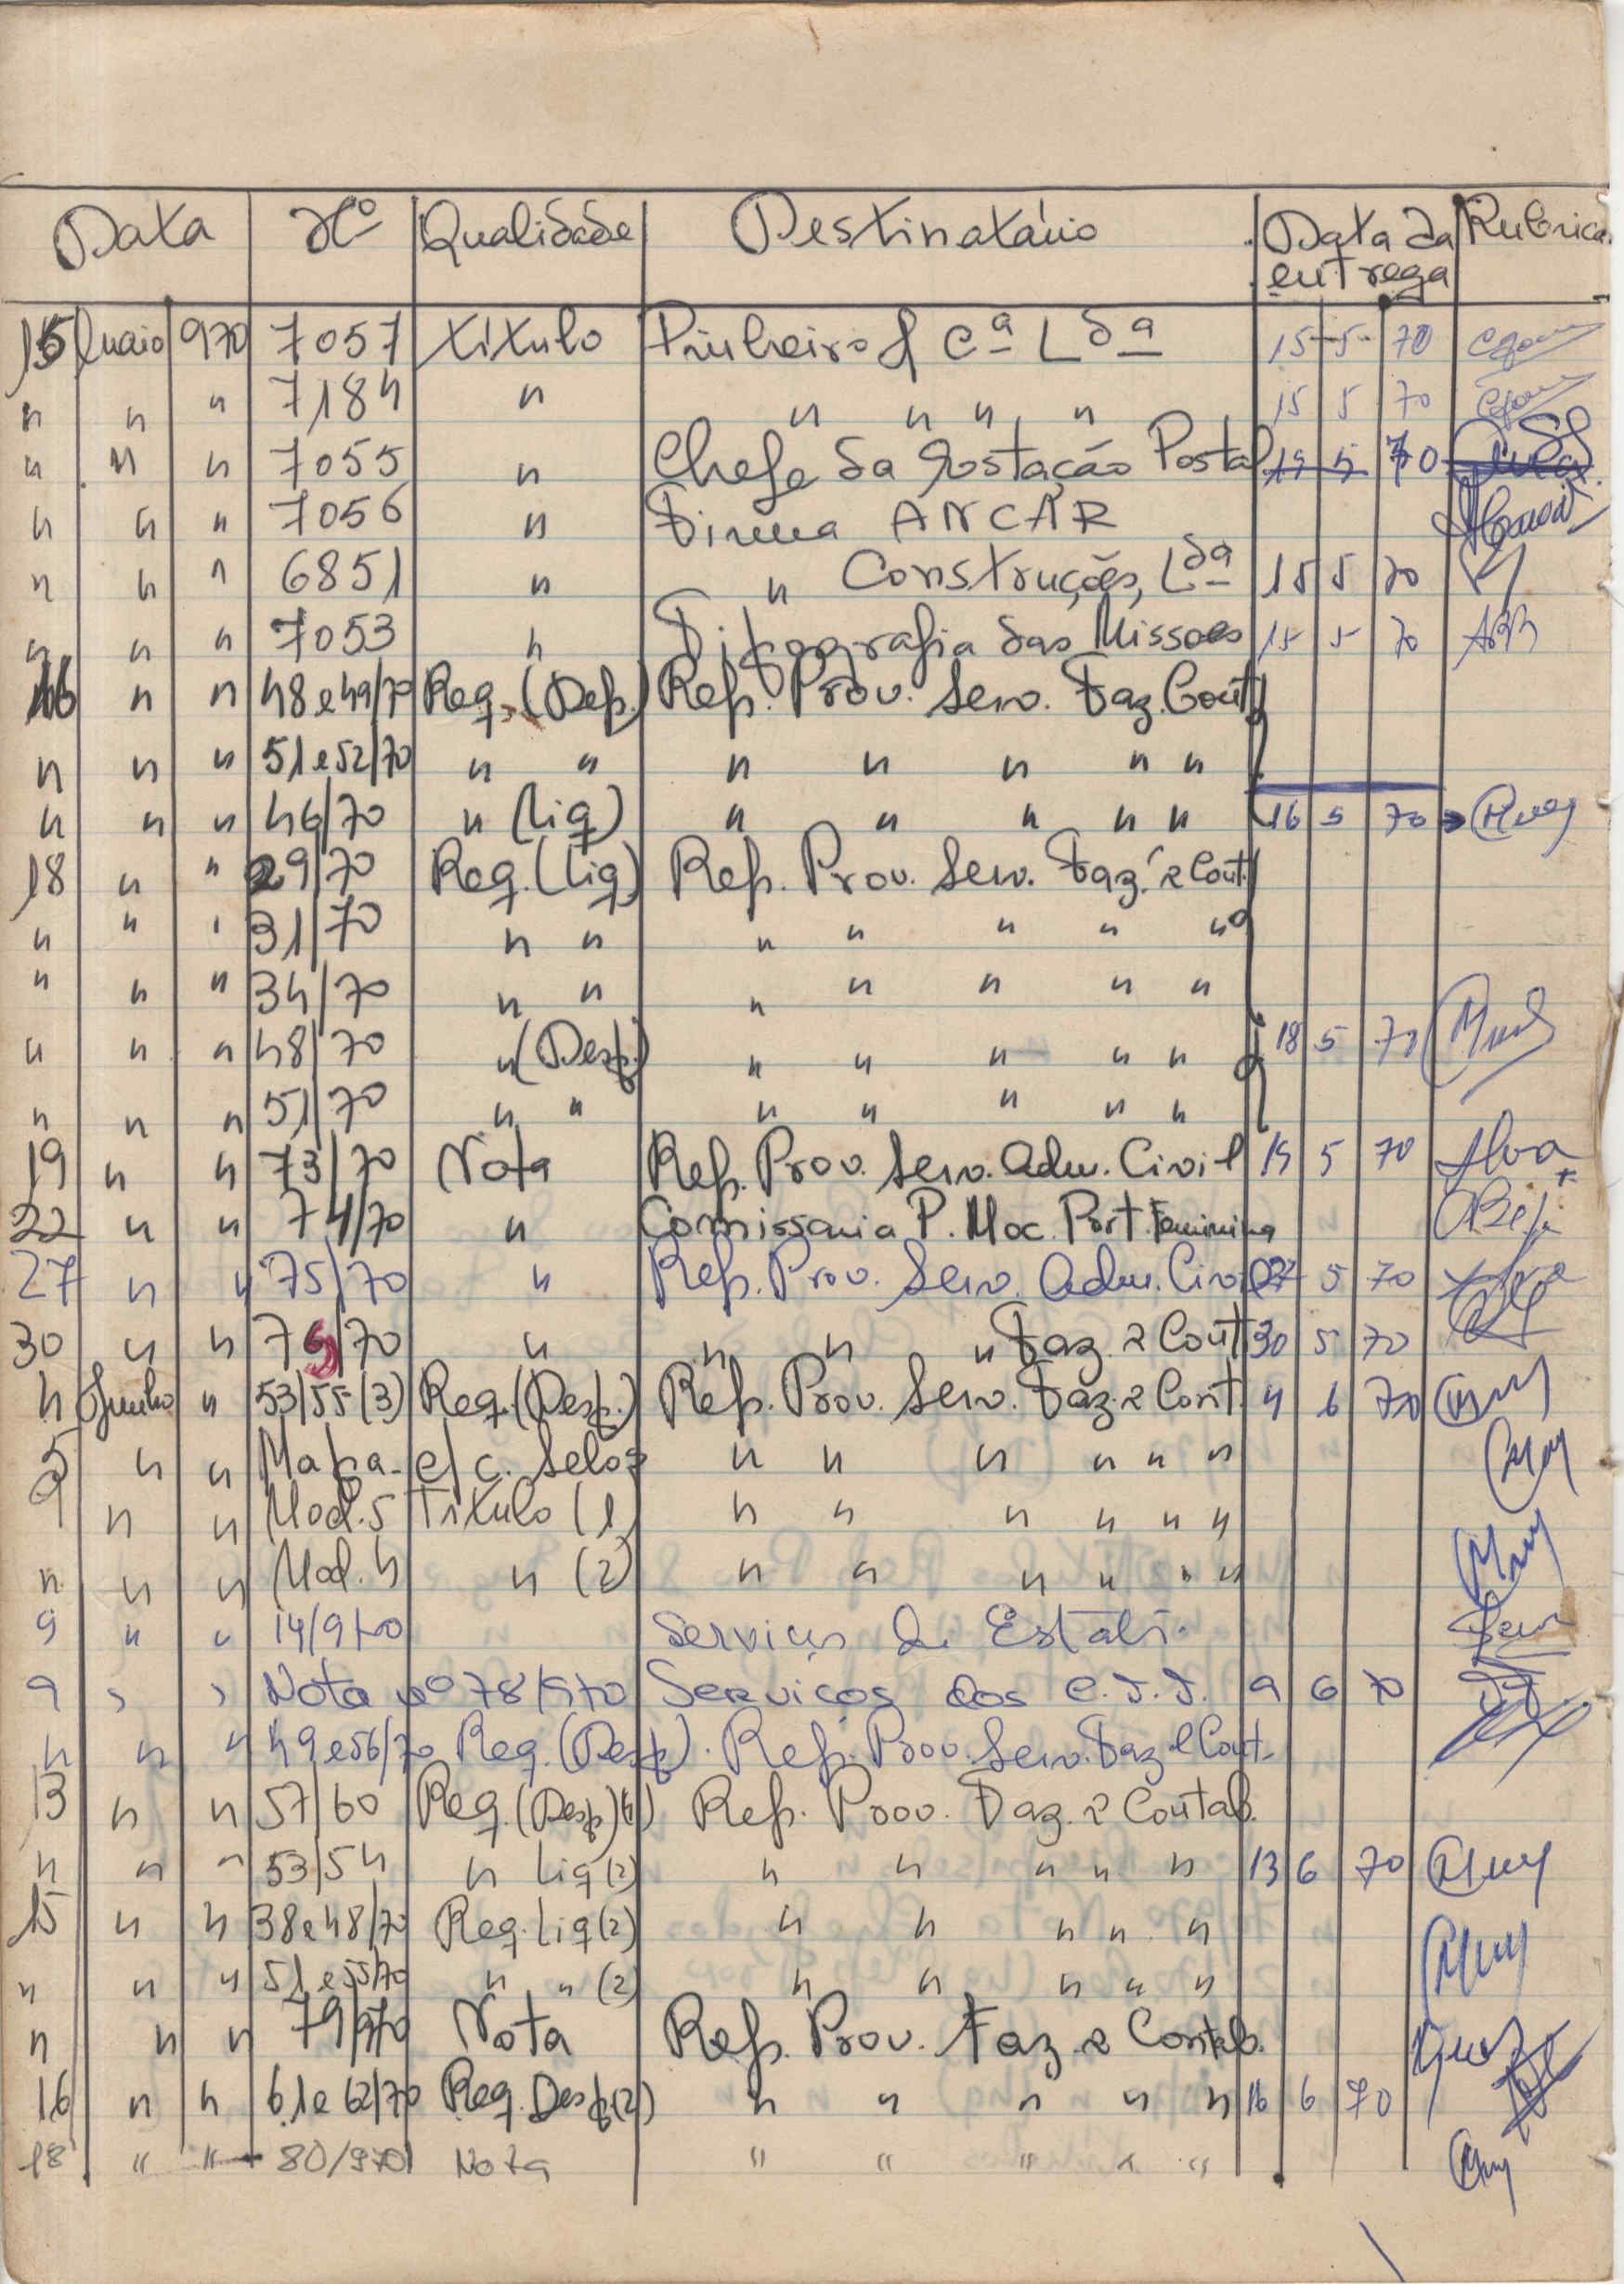 Data Nº Qualidade Destinatário Data da entrega Rubrica
15 Maio 970 7057 Título Pinheiro & Cª Ldª 15 5 70
" " " 7184 " " " " " 15 5 70
" " " 7055 " Chefe da Estação Postal 19 5 70
" " " 7056 " Firma ANCAR
" " " 6851 " " Construções, Ldª 15 5 70
" " " 7053 " Tipografia das Missoes 15 5 70
16 " " 48 e 49/70 Req. (Desp.) Rep. Prov. Serv. Faz. Cont
" " " 51 e 52/70 " " " " " " "
" " " 46/70 " (Liq) " " " " " 16 5 70
18 " " 29/70 Req. (Liq) Rep. Prov. Serv. Faz. e Cont.
" " " 31/70 " " " " " " "
" " " 34/70 " " " " " " "
" " " 48/70 " (Desp.) " " " " " 18 5 70
" " " 51/70 " " " " " " "
19 " " 73/70 Nota Rep. Prov. Serv. Adm. Civil 19 5 70
22 " " 74/70 " Comissaria P. Moc. Port. Feminina
27 " " 75/70 " Rep. Prov. Serv. Adm. Civil 27 5 70
30 " " 75/70 " " " " Faz. e Cont 30 5 70
4 Junho " 53/55 (3) Req. (Desp.) Rep. Prov. Serv. Faz. e Cont. 4 6 70
5 " " Mapa c/c. Selos " " " " " "
9 " " Mod. 5 Titulo (1) " " " " " "
" " " Mod. 4 " (2) " " " " " "
9 " " 14/970 Serviços de Estati.
9 " " Nota nº 78/970 Serviços dos C.T.T. 9 6 70
" " " 49 e 56/70 Req. (Desp). Rep. Prov. Serv. Faz e Cont.
13 " " 57/60 Req. (Desp) (4) Rep. Prov. Faz. e Contab.
" " " 53/54 " Liq (2) " " " " " 13 6 70
15 " " 38 e 48/70 Req. Liq (2) " " " " "
" " " 51 e 55/70 " " (2) " " " " "
" " " 79/970 Nota Rep. Prov. Faz e Contab.
16 " " 61 e 62/70 Req. Desp (2) " " " " " 16 6 70
18 " " 80/970 Nota " " " " "